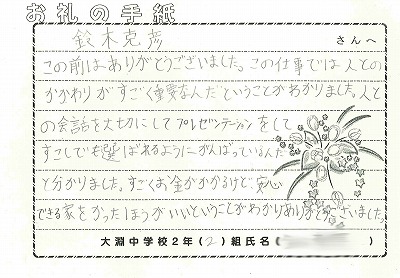 お礼の手紙
鈴木克彦 さんへ
この前はありがとうございました。この仕事では人との
かかわりがすごく重要なんだということがわかりました。人と
の会話を大切にしてプレゼンテーションをして
すこしでも選ばれるようにがんばっているんだ
と分かりました。すごくお金がかかるけど、安心
できる家をかったほうがいいということがわかりありがとうございました。
大淵中学校2年(2)組氏名( )